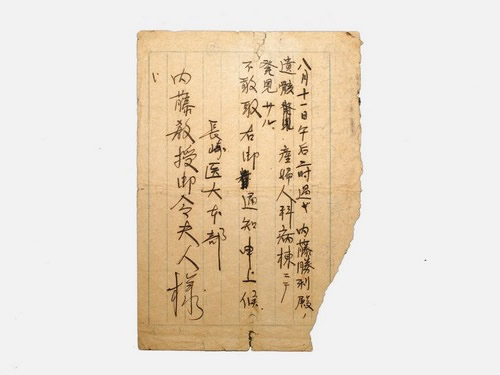 八月十一日午后二時過ギ 内藤勝利殿ノ
遺骸 産婦人科病棟ニテ
発見サル。
不敢取右御通知申上候、
長崎医大本部
内藤教授御令夫人様